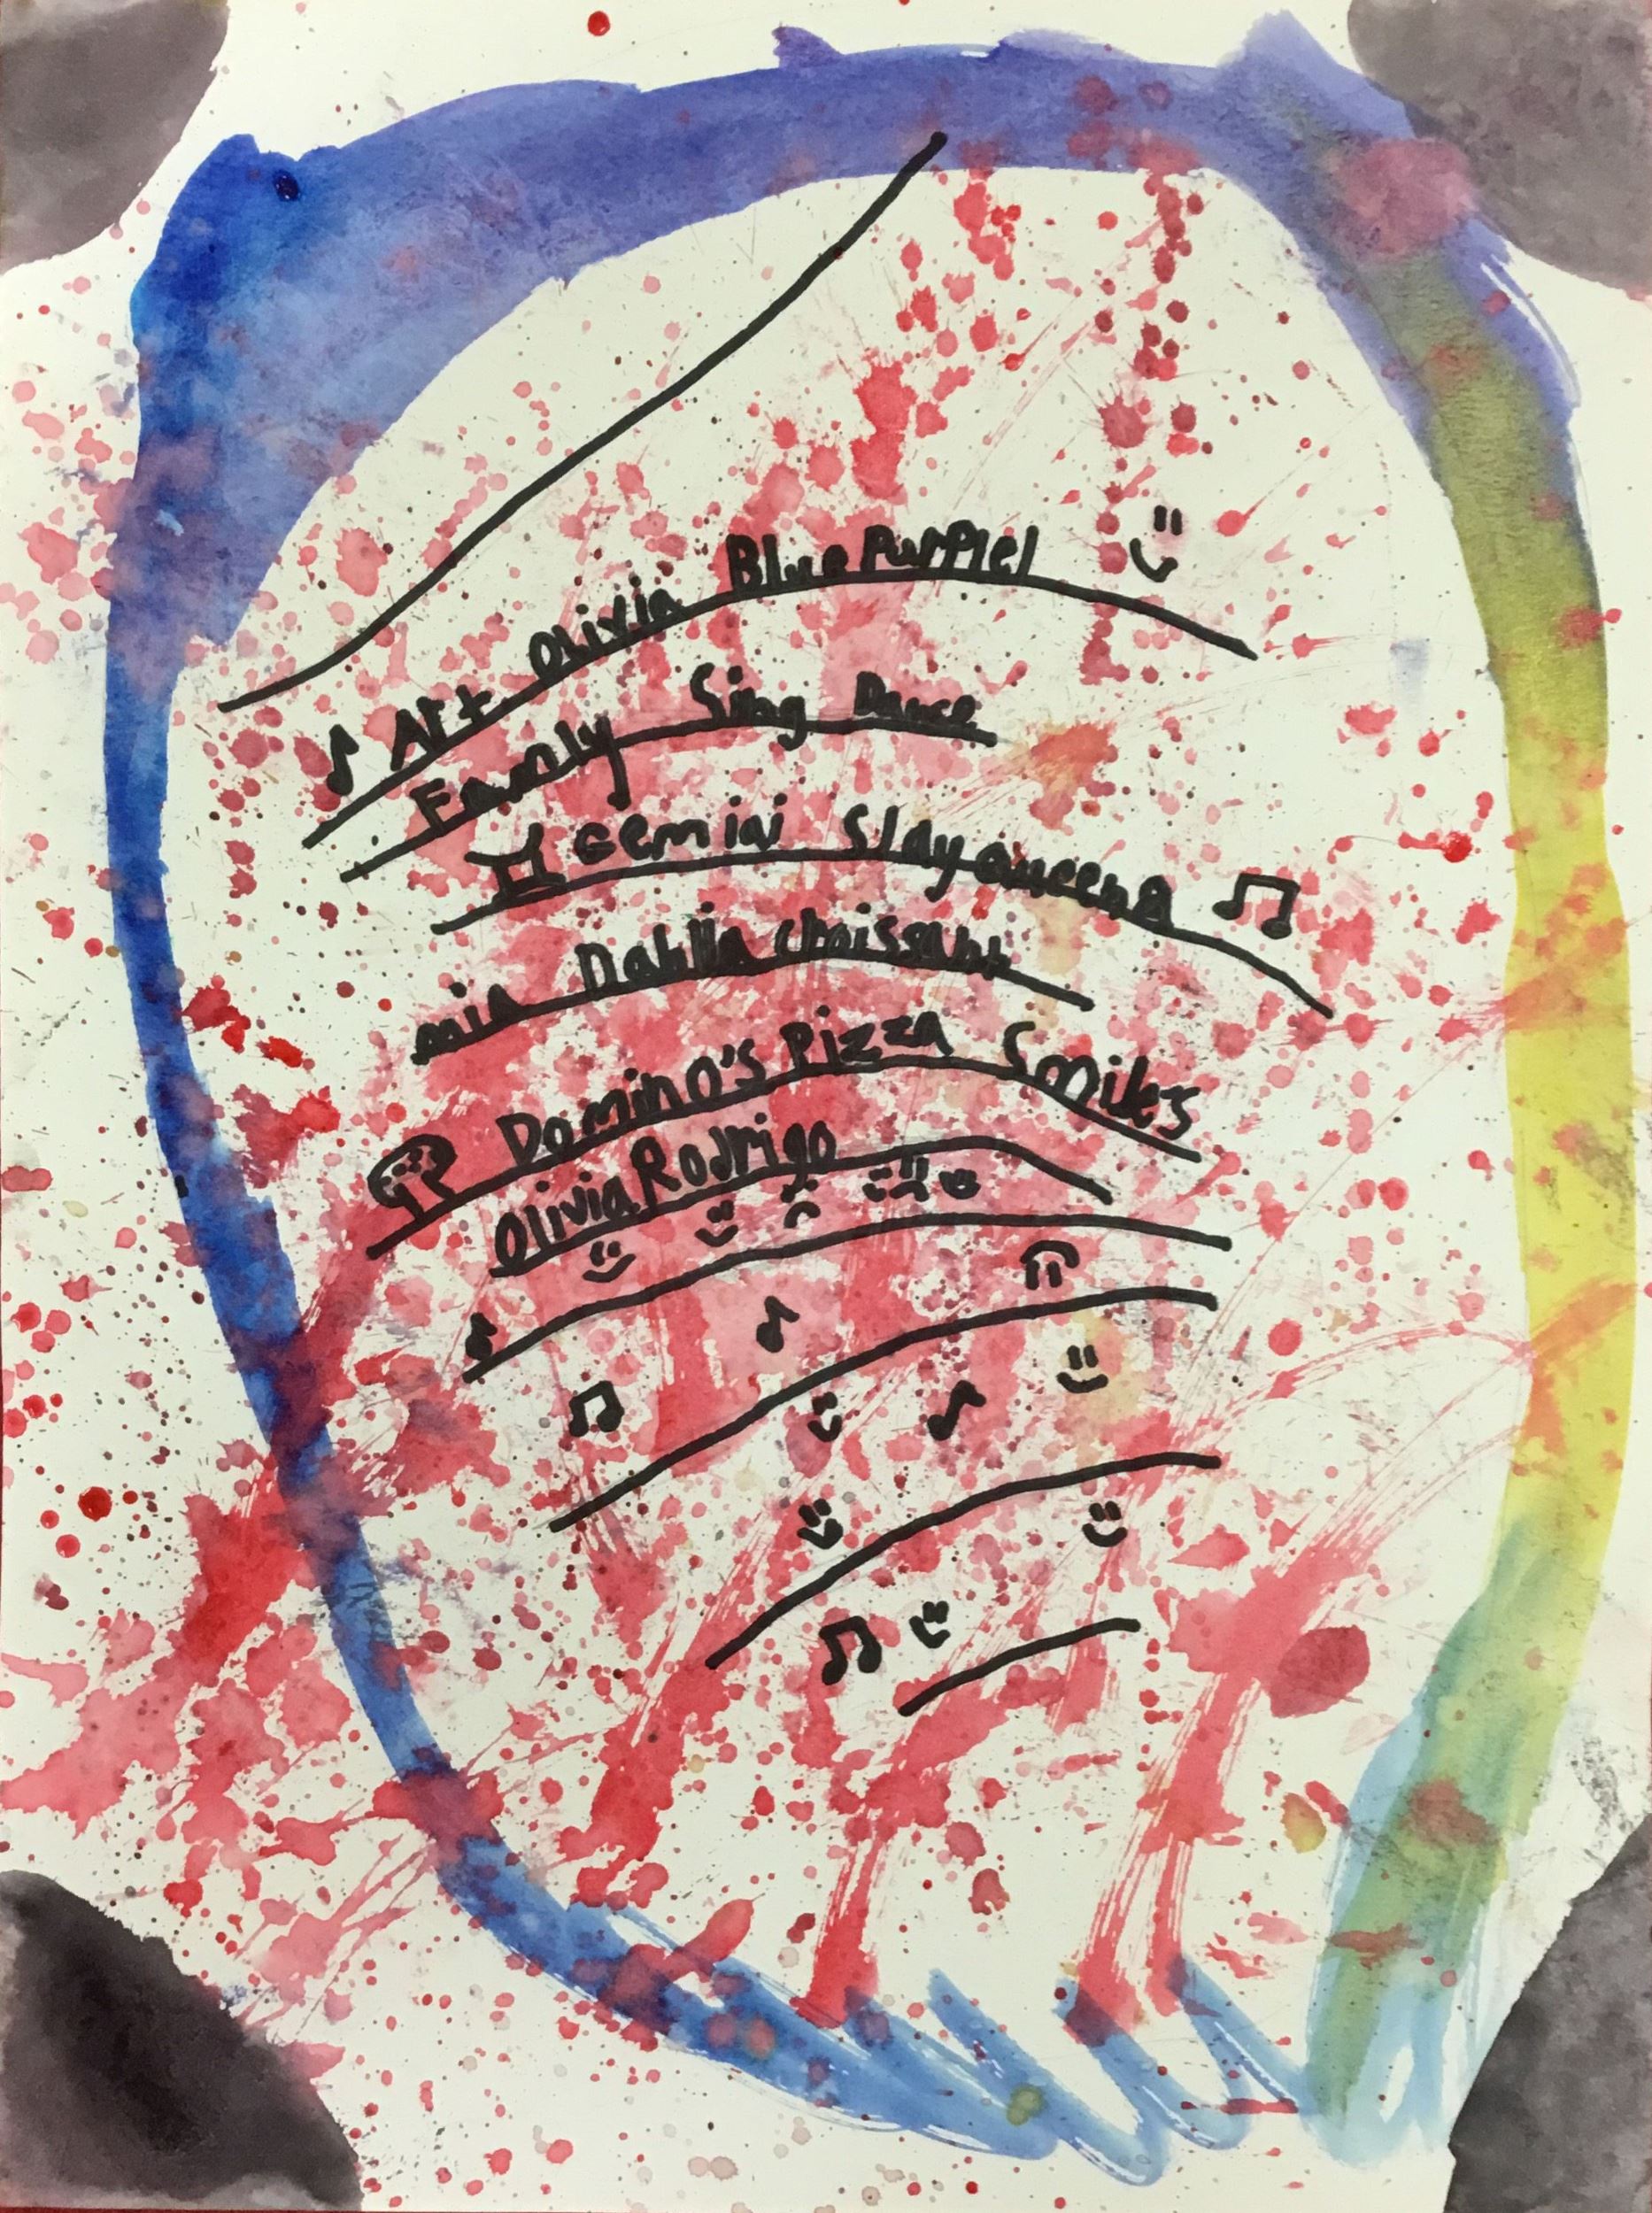 Art Olivia Blue PurPlel
Family Sing Dance
Gemini Slayqueena
mia Dahlia choissant
Domino's Pizza Smiles
Olivia Rodrigo